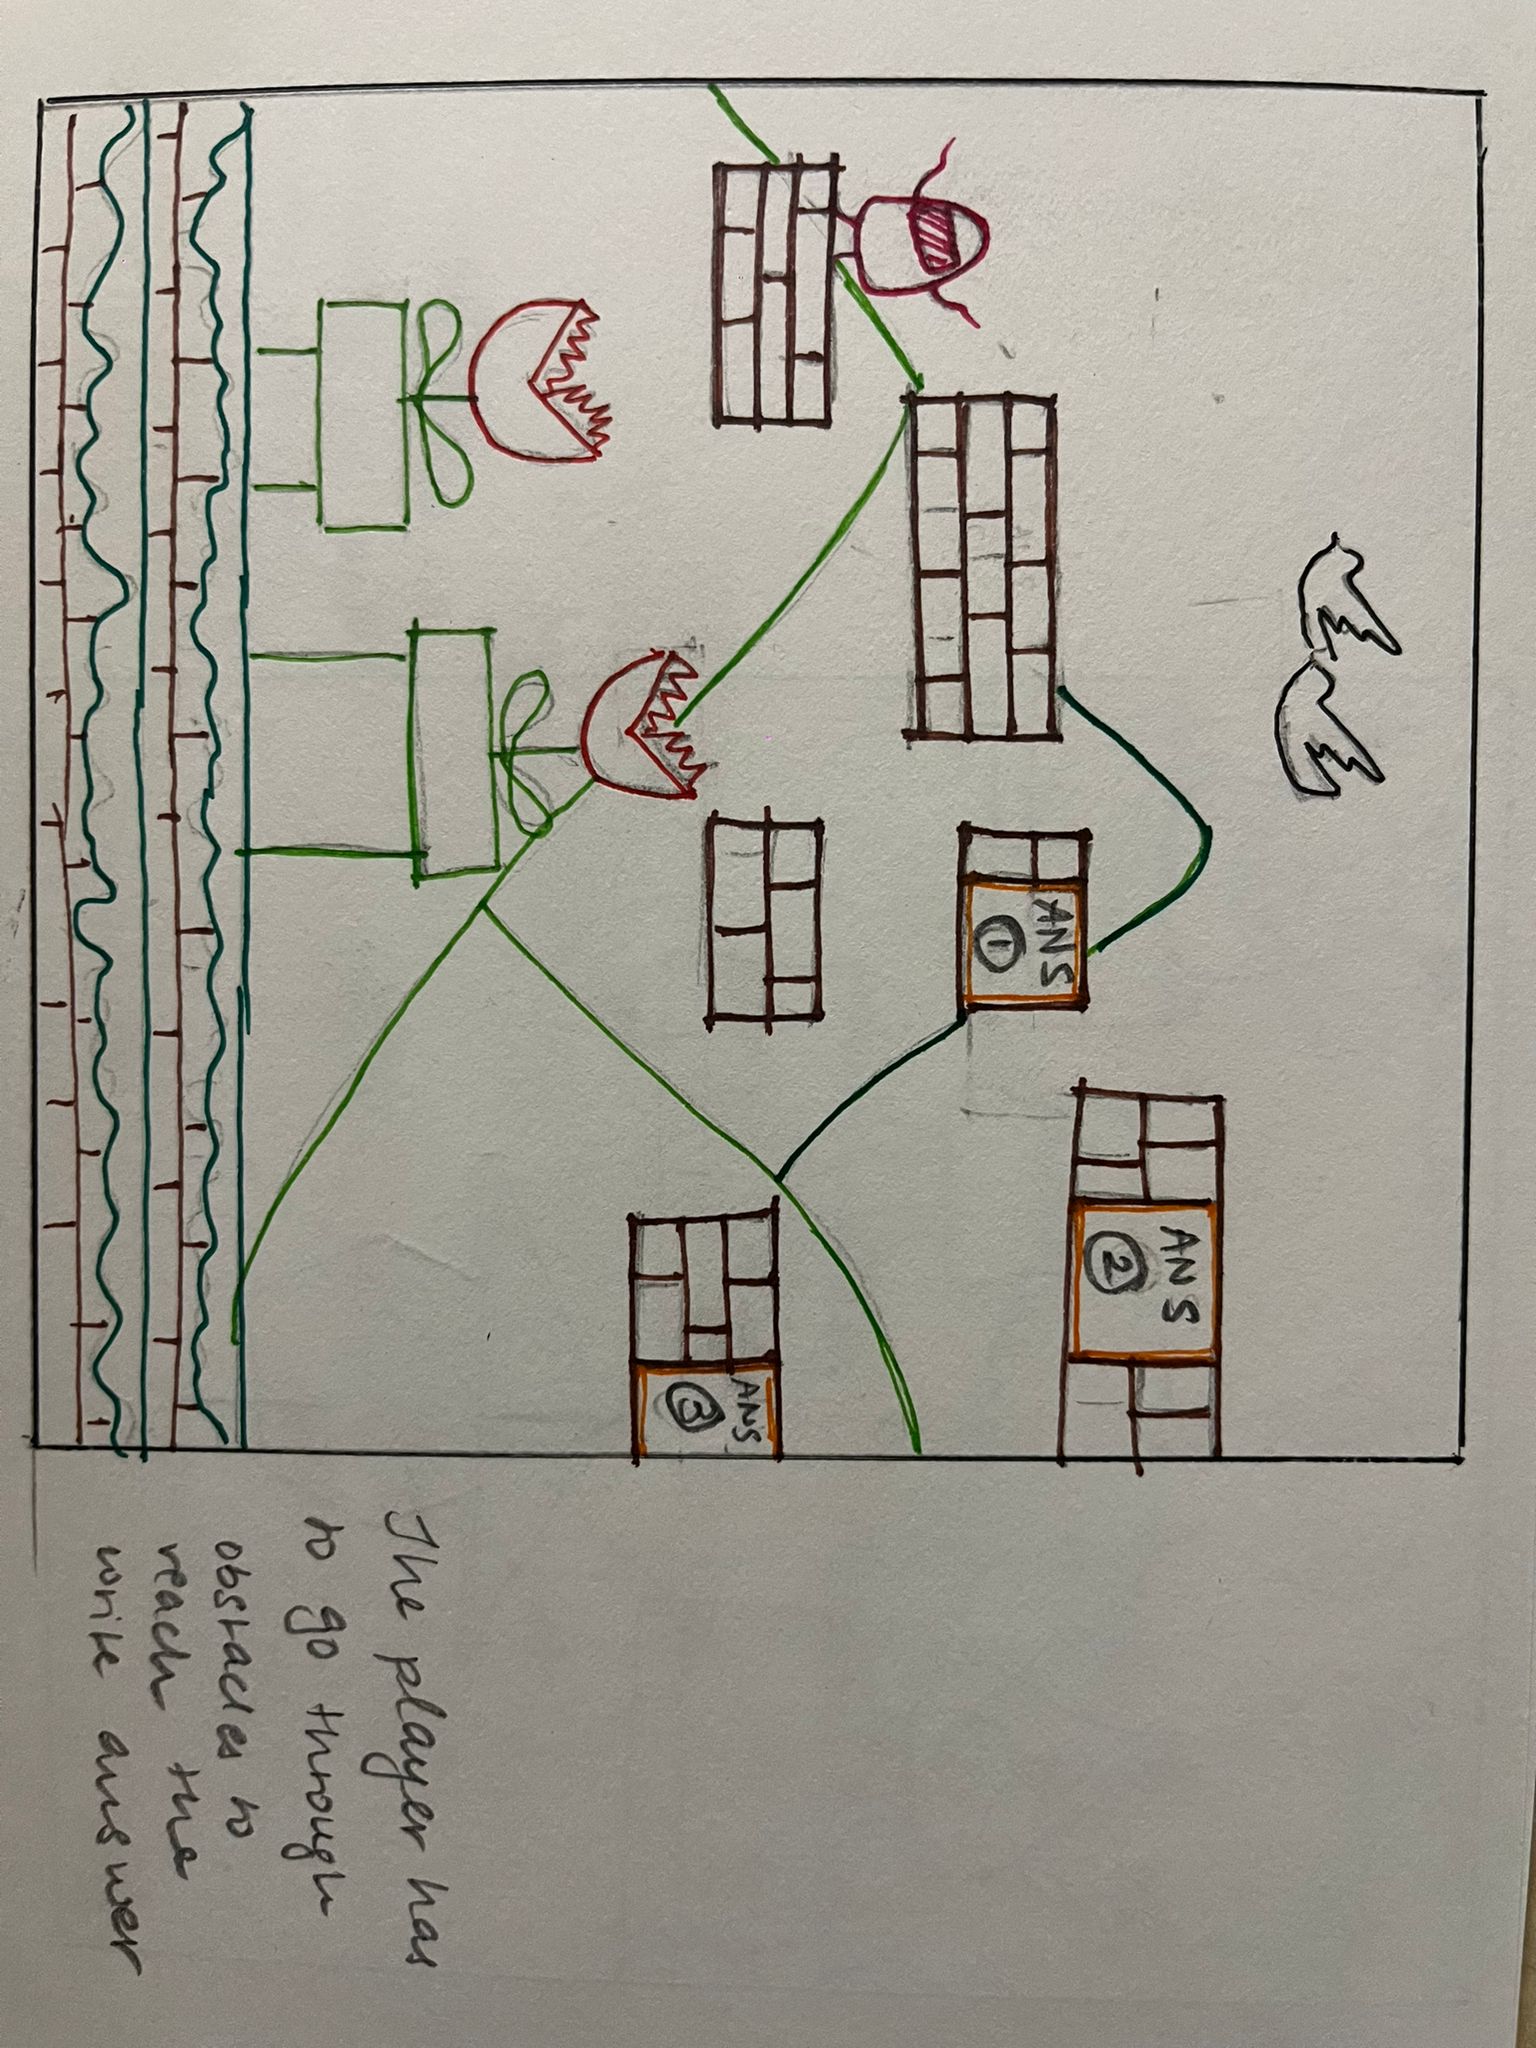 ANS
1
ANS
2
ANS
3
The player has
to go through
obstacles to
reach the
write answer